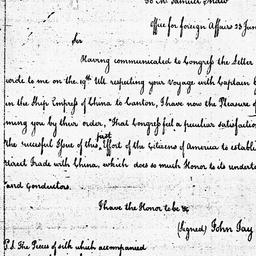 To Mr. Samuel Shaw
Office for foreign Affairs 23 June
Sir
Having communicated to Congress the Letter
wrote to me on the 19th Ult. respecting your Voyage with Captain
in the Ship Empress of China to Canton, I have now the Pleasure of
ming you by their order, "That Congress feel a peculiar satisfactio
first
the successful Issue of this Effort of the Citizens of America to establi
direct Trade with China, which does so much Honor to its underta
and Conductors.
I have the Honor to be &c
(Signed) John Jay
P.S. The Pieces of silk which accompanied